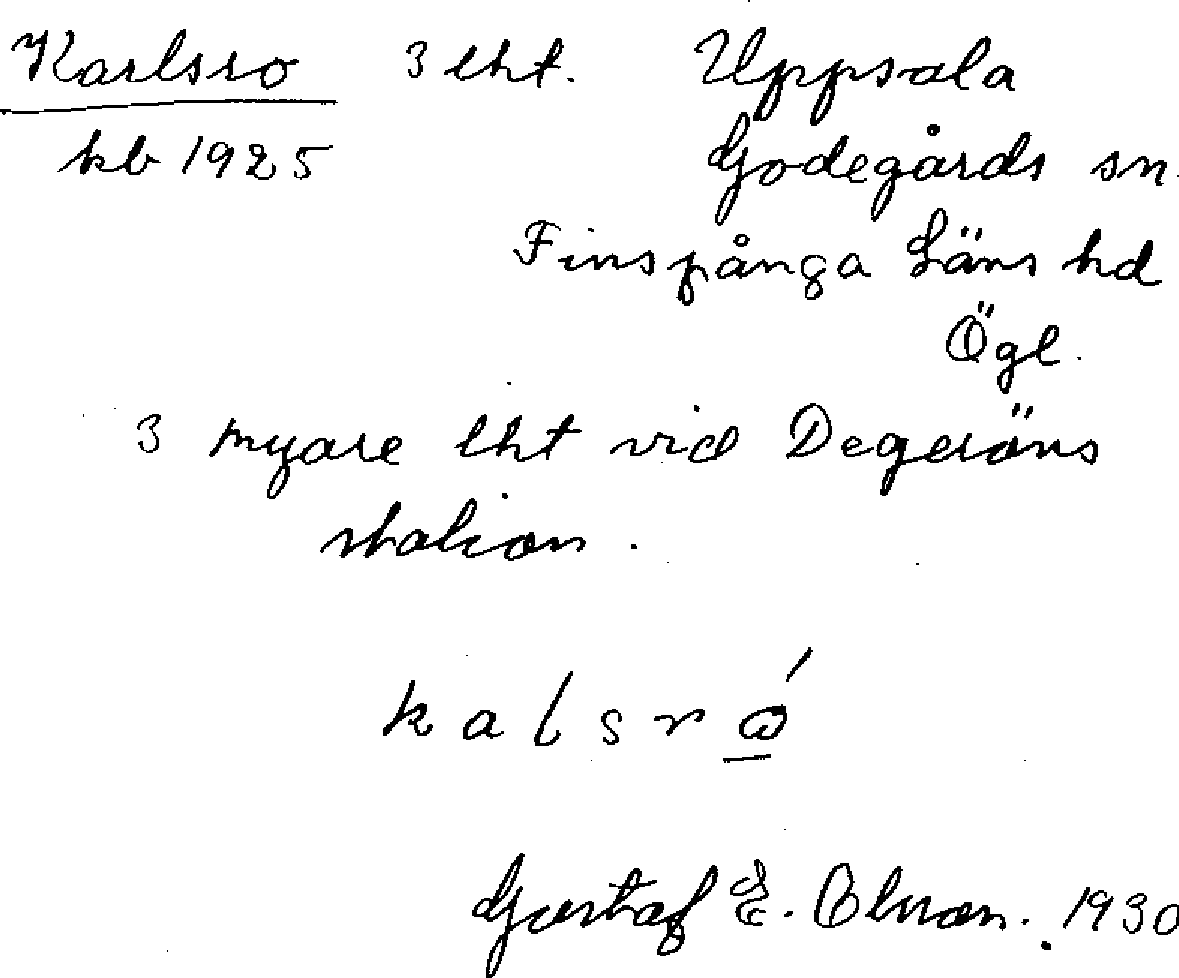 Karlsro 3 lht. Uppsala
kb 1925 Godegårds sn.
Finspånga Läns hd
Ögl.
3 nyare lht vid Degeröns
station.
kalsrώ̲
Gustaf E. Olson. 1930